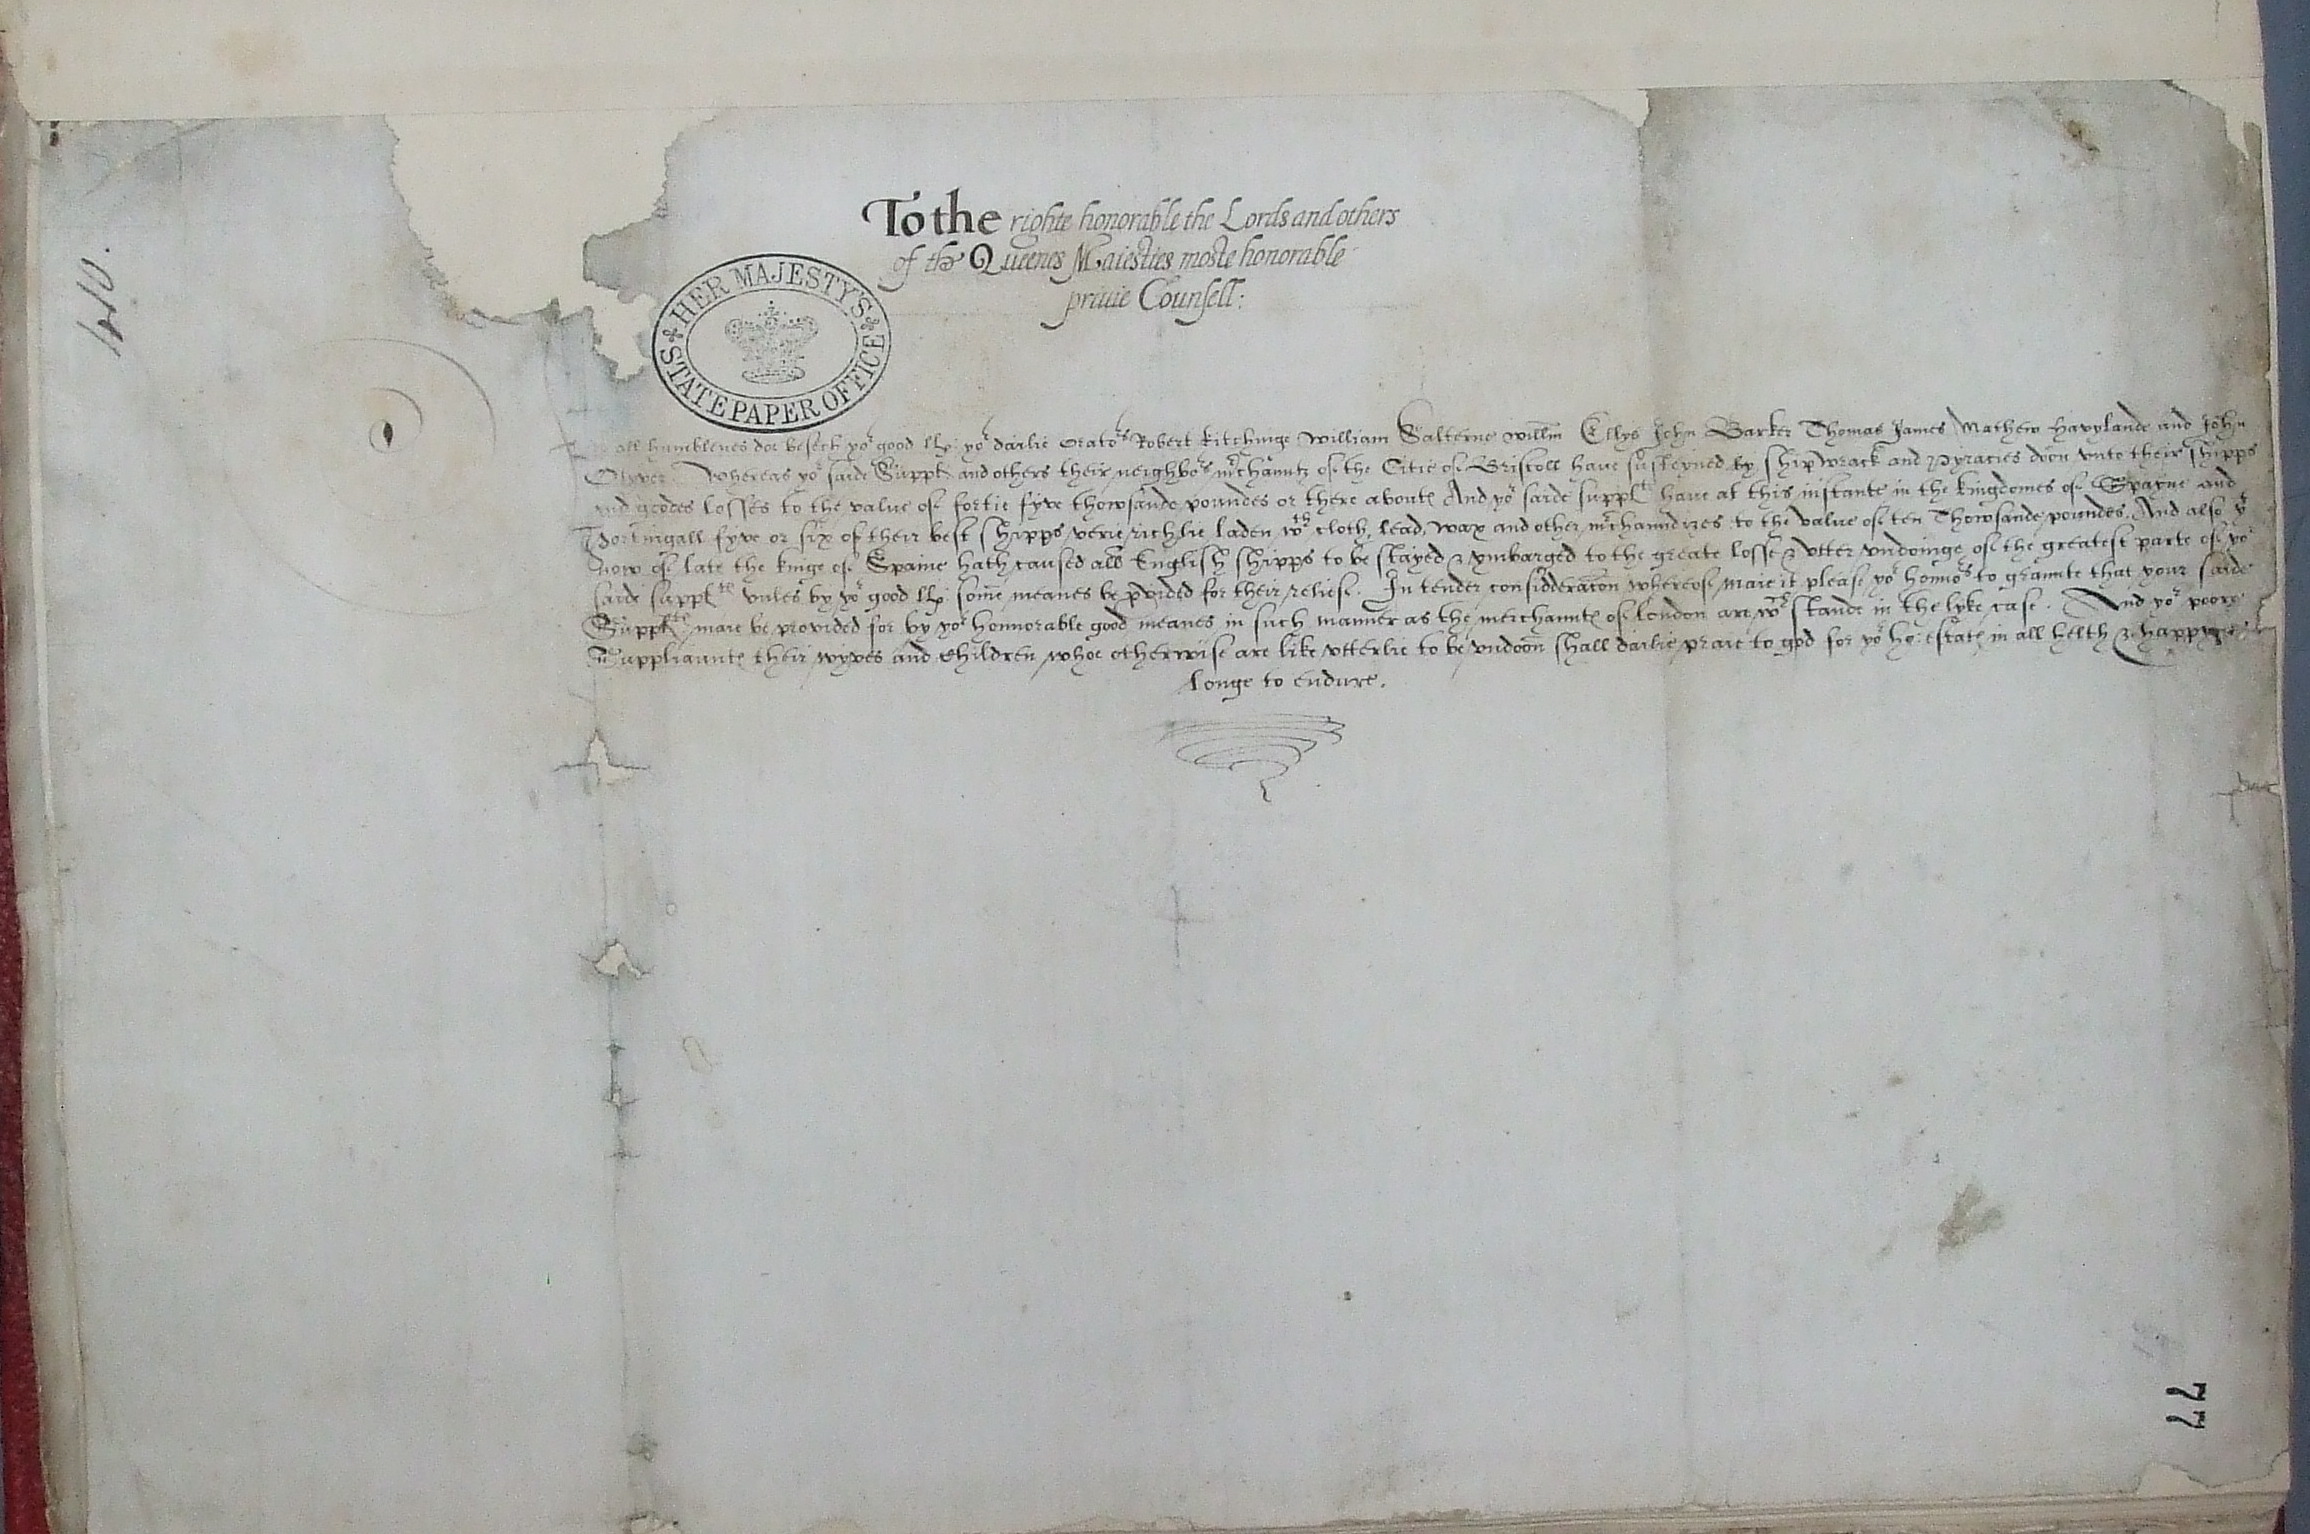 40.
To the righte honorable the Lords and others
of the Queenes Maiesties moste honorable
privie Counsell:
HER MAJESTY'S STATE PAPER OFFICE
all humblenes doe besech yor good llp: yor dailie orators Robert Kitchinge William Salterne willm Ellys John Barker Thomas James Mathew Havylande and John
Olyver. Whereas yor saide Supplts and others their neighbors mrchauntz of the Citie of Bristoll have susteyned by shipwrack and Pyracies doon unto their shipps
and goodes losses to the value of fortie fyve thowsande poundes or there aboutes And yor saide supplts have at this instante in the kingdomes of Spayne and
Portingall fyve or six of their best shipps verie richlie laden wth cloth, lead, wax and other mrchaundizes to the value of ten Thowsande poundes. And also yt
now of late the kinge of Spaine hath caused all English shipps to be stayed & ymbarged to the greate losse & utter undoinge of the greatest parte of yor
saide supplts unles by yor good llp: some meanes be pvided for their reliefe. In tender consideracon whereof maie it please yor honors to graunte that your saide
Supplts maie be provided for by yor honnorable good meanes in such manner as the merchauntes of london are wch stande in the lyke case. And yor poore
Suppliauntes their wyves and children whoe otherwise are like utterlie to be undoon shall dailie praie to god for yor ho: estates in all helth & happynes
longe to endure.
77